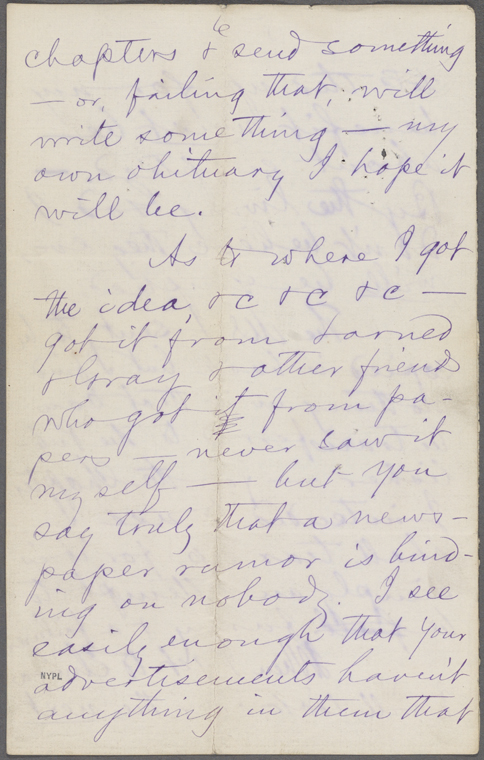 6
chapters & send something
— or, failing that, will
write something — my
own obituary I hope it
will be.
As to where I got
the idea, &c &c &c —
got it from
& & other friends
who got it from pa-
pers — never saw it
myself — but you
say truly that a news-
paper rumor is bind-
ing on nobody. I see
easily enough that your
NYPL
advertisements haven't
anything in them that